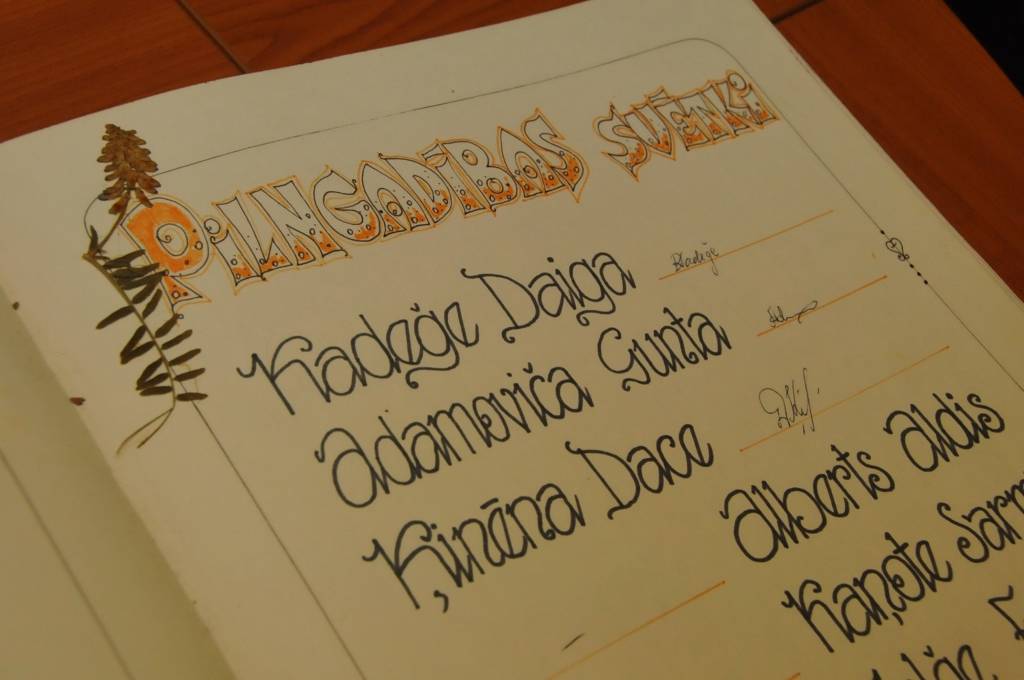 PILNGADĪBAS SVĒTKI
Kadeģe Daiga
Adamoviča Gunta
Ķinēna Dace
Alberts Aldis
Kaņote